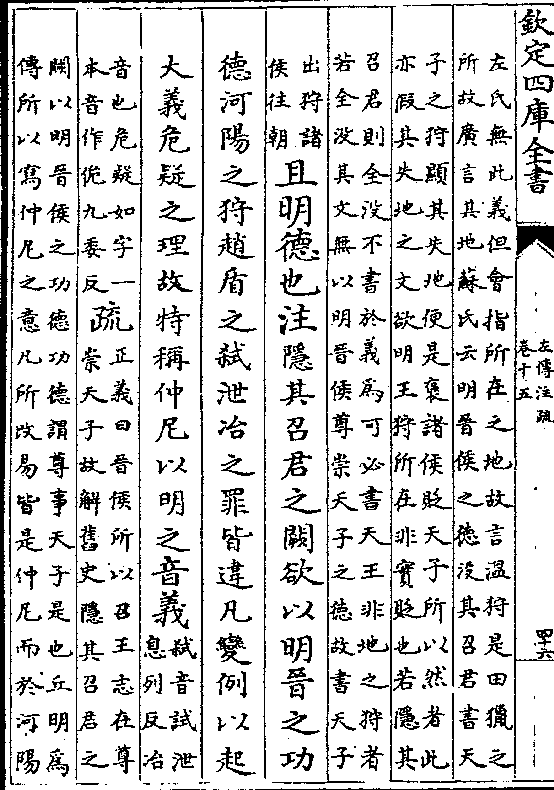 欽定四庫全書
左傳注疏
卷十五
四十六
左氏無此義但會指所在之地故言溫狩是田獵之
所故廣言其地蘇氏云明晉侯之德没其召君書天
子之狩顯其失地便是褒諸侯貶天子所以然者此
亦假其失地之文欲明王狩所在非實貶也若隱其
召君則全没不書於義為可必書天王非地之狩者
若全没其文無以明晉侯尊崇天子之德故書天子
出狩諸
侯往朝
且明德也注隱其召君之闕欲以明晉之功
德河陽之狩趙盾之弑泄冶之罪皆違凡變例以起
大義危疑之理故特稱仲尼以明之音義
弑音試泄
息列反冶
音也危疑如字一
本音作佹九委反
疏
正義曰晉侯所以召王志在尊
崇天子故解舊史隱其召君之
闕以明晉侯之功德功德謂尊事天子是也丘明為
傳所以寫仲尼之意凡所改易皆是仲尼而於河陽